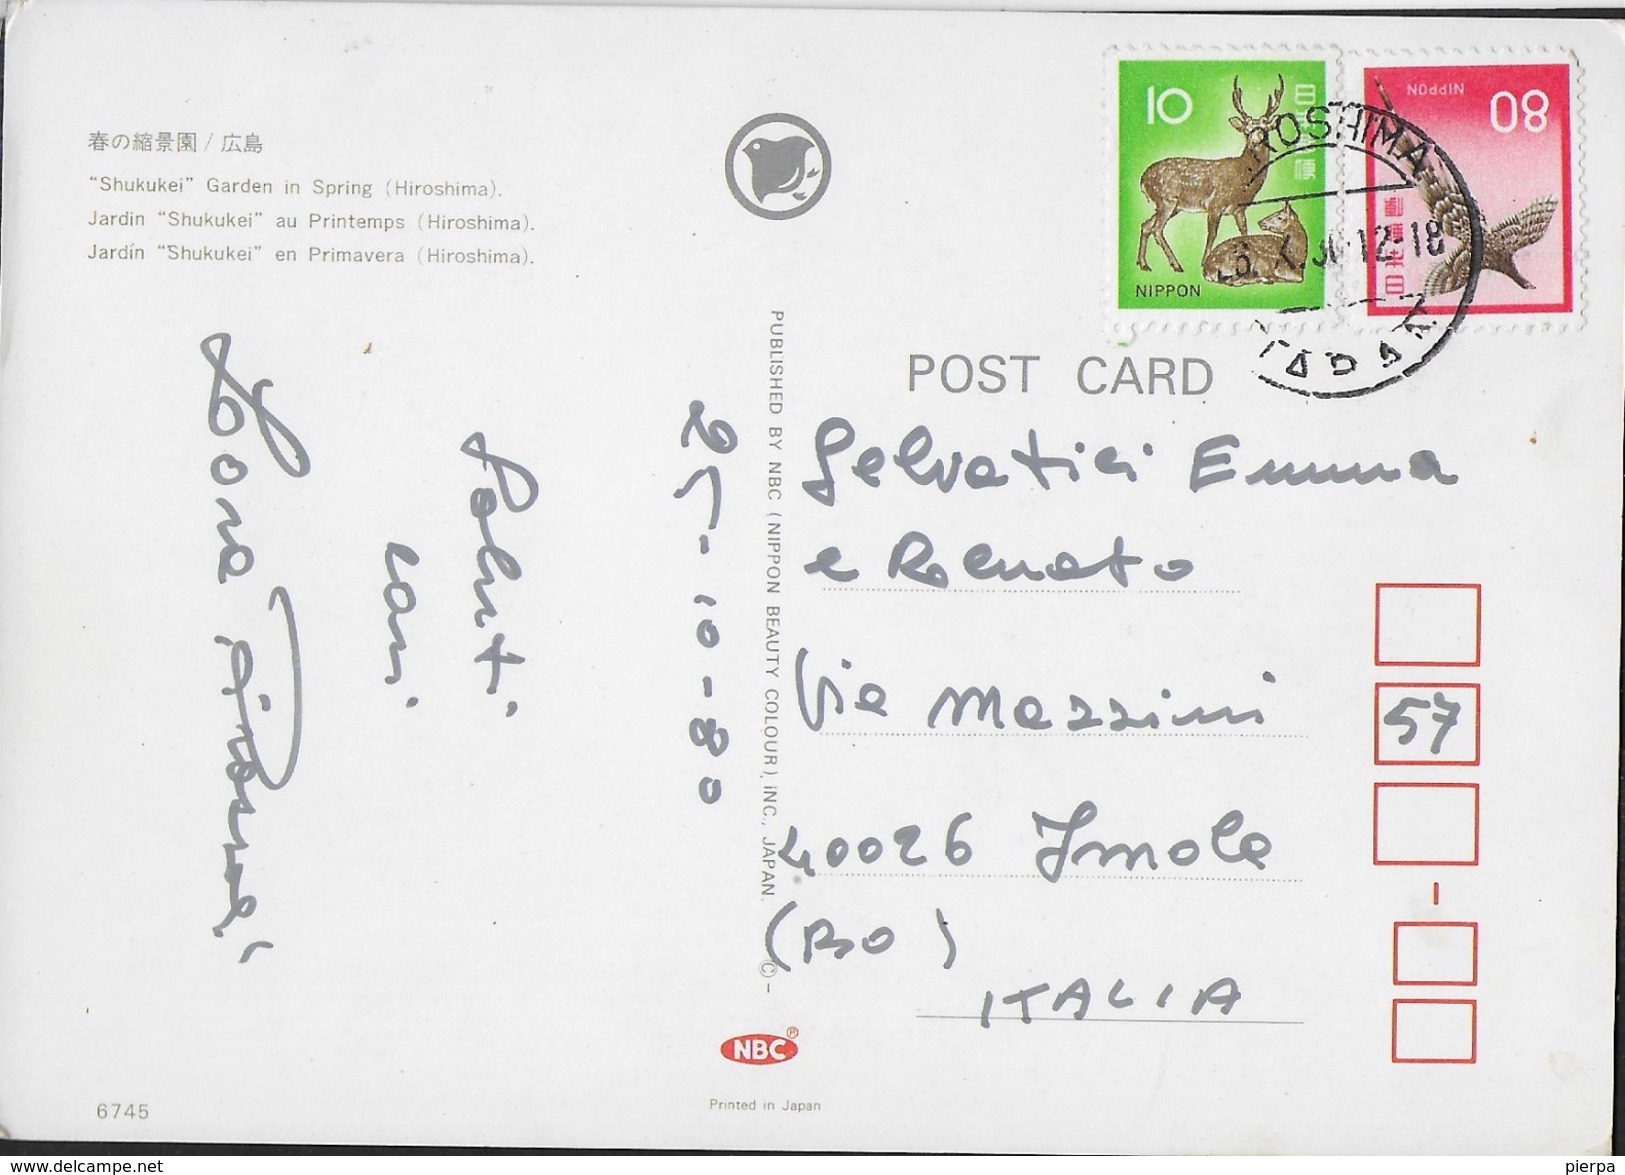 春の縮景園 / 広島
“Shukukei” Garden in Spring (Hiroshima).
Jardin “Shukukei” au Printemps (Hiroshima).
Jardín “Shukukei” en Primavera (Hiroshima).
10
日本郵便
NIPPON
80
NIPPON
日本郵便
ROSHIMA
12-18
POST CARD
PUBLISHED BY NBC (NIPPON BEAUTY COLOUR), INC., JAPAN. ©-
25-10-80
Saluti
cari
Selvatici Emma
e Renato
Via Mazzini
57
40026 Imola
(BO)
ITALIA
NBC®
Printed in Japan
6745
www.delcampe.net
pierpa